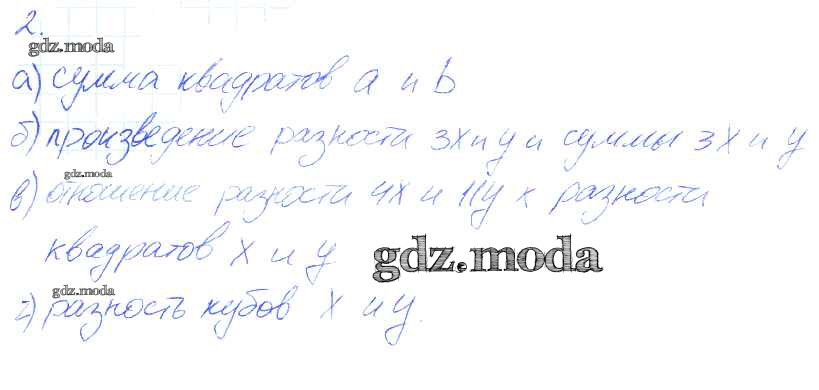 2.
gdz.moda
а) сумма квадратов a и b
б) произведение разности 3x и y и суммы 3x и y
gdz.moda
в) отношение разности 4x и 11y к разности
квадратов x и y
gdz.moda
gdz.moda
г) разность кубов x и y.